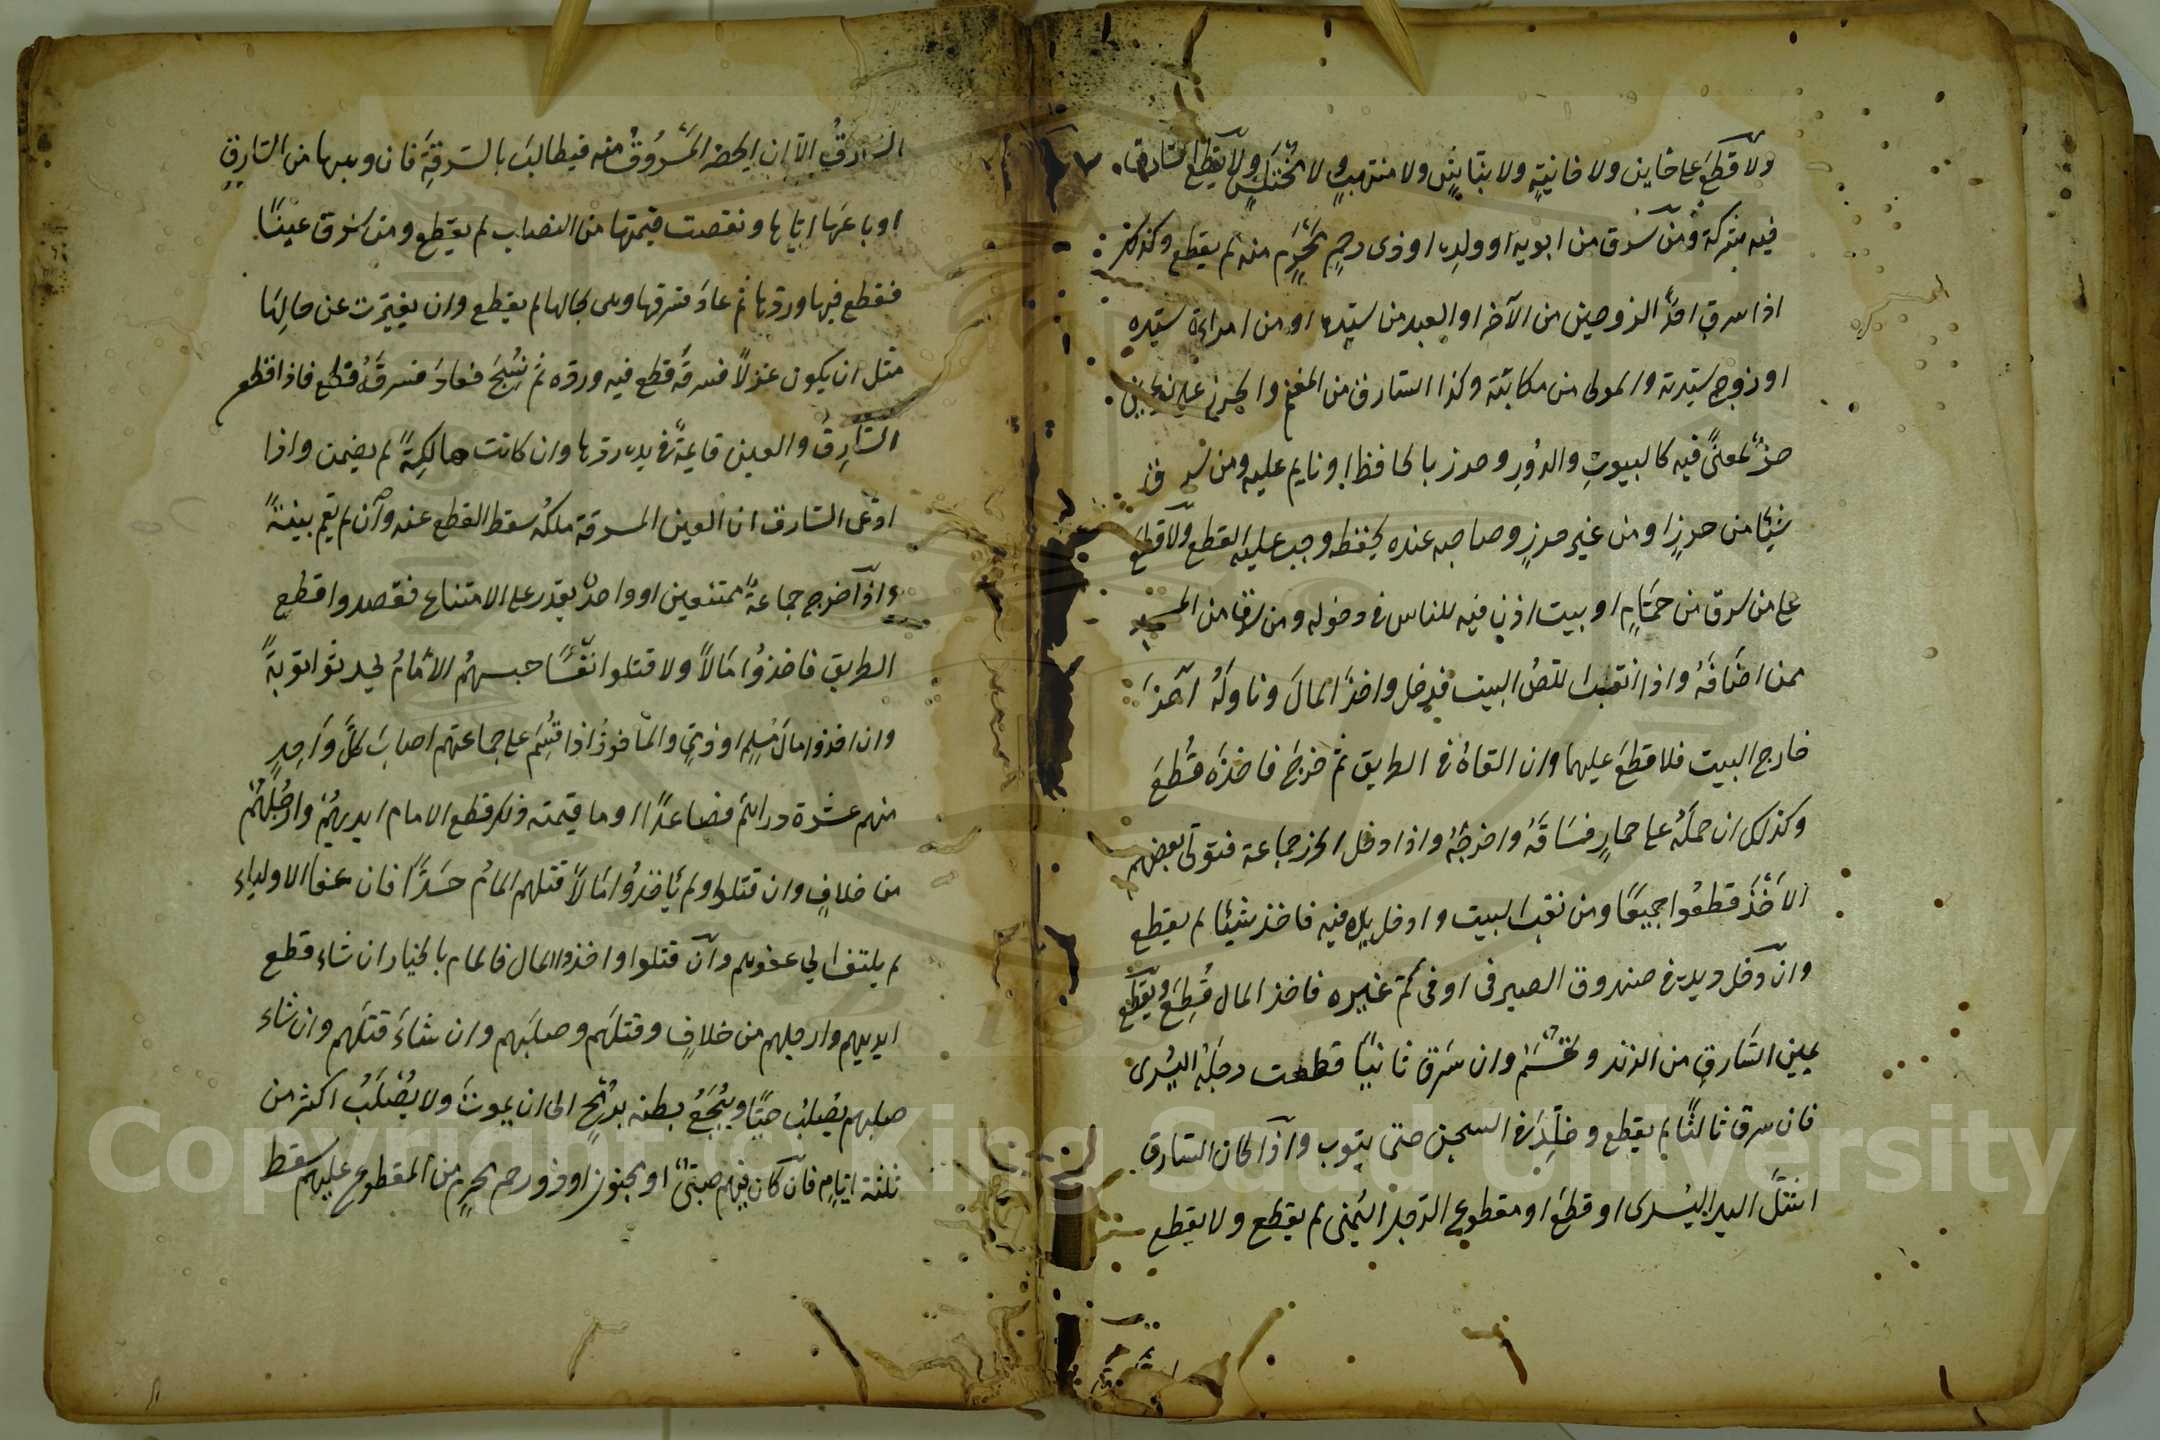 ولا قطع على خاين ولا خاينة ولا نباش ولا منتهب ولا مختلس ولا يقطع السارق
فيه شركة ومن سرق من ابويه او ولده او ذى رحم محرم منه لم يقطع وكذلك
اذا سرق احد الزوجين من الآخر او العبد من سيده او من امراءة سيده
او زوج سيدته والمولى من مكاتبه وكذا السارق من المغنم والحرز على نوعين
حرز لمعنًى فيه كالبيوت والدور وحرز بالحافظ او نايم عليه ومن سرق
شيئا من حرز او من غير حرز وصاحبه عنده يحفظه وجب عليه القطع ولا قطع
على من سرق من حمّام او بيت اذن فيه للناس فى دخوله ومن سرق من المسجد
ممن اضافه واذا انقب اللصّ البيت فدخل واخذ المال وناوله آخر
خارج البيت فلا قطع عليهما وان القاه فى الطريق ثم خرج فاخذه قُطع
وكذلك ان حمله على حمار فساقه واخرجه واذا دخل الحرز جماعة فتولى بعضهم
الاخذ قطعوا جميعًا ومن نقب البيت وادخل يده فيه فاخذ شيئا لم يقطع
وان دخل ويده فى صندوق الصيرفى او فى كمّ غيره فاخذ المال قُطع ويقطع
يمين السارق من الزند وتحسم وان سرق ثانيًا قطعت رجله اليسرى
فان سرق ثالثًا لم يقطع وخلد فى السجن حتى يتوب واذا كان السارق
اشلّ اليد اليسرى او قطع او مقطوع الرجل اليمنى لم يقطع ولا يقطع
السارق الا ان يحضر المسروق منه فيطالب بالسرقة فان وهبها من السارق
او باعها اياها ونقصت قيمتها من النصاب لم يقطع ومن سرق عينًا
فقطع فيها وردها ثم عاد فسرقها وهى بحالها لم يقطع وان تغيّرت عن حالها
مثل ان يكون غزلًا فسرقه قطع فيه ورده ثم نُسج فعاد فسرقه قطع فاذا قطع
السارق والعين قايمة فى يده ردها وان كانت هالكة لم يضمن واذا
ادعى السارق ان العين المسرقة ملكه سقط القطع عنه وان لم يقم بينةً
واذا خرج جماعة ممتنعين او واحد يقدر على الامتناع فقصدوا قطع
الطريق فاخذوا مالًا ولا قتلوا نفسًا حبسهم الامام ليحدثوا توبةً
وان اخذوا مال مسلم او ذمّى والماخوذ اذا قسم على جماعتهم اصاب كلّ واحد
منهم عشرة دراهم فصاعدًا او ما قيمته ذلك قطع الامام ايديهم وارجلهم
من خلاف وان قتلوا ولم ياخذوا مالًا قتلهم المام حدًّا فان عفا الاولياء
لم يلتف الى عفوهم وان قتلوا واخذوا المال فالمام بالخيار ان شاء قطع
ايديهم وارجلهم من خلاف وقتلهم وصلبهم وان شاء قتلهم وان شاء
صلبهم يصلب حيًّا ويبجع بطنه برمح الى ان يموت ولا يصلب اكثر من
ثلثة ايّام فان كان فيهم صبىّ او مجنون او ذو رحم محرم من المقطوع عليهم سقط
Copyright © King Saud University